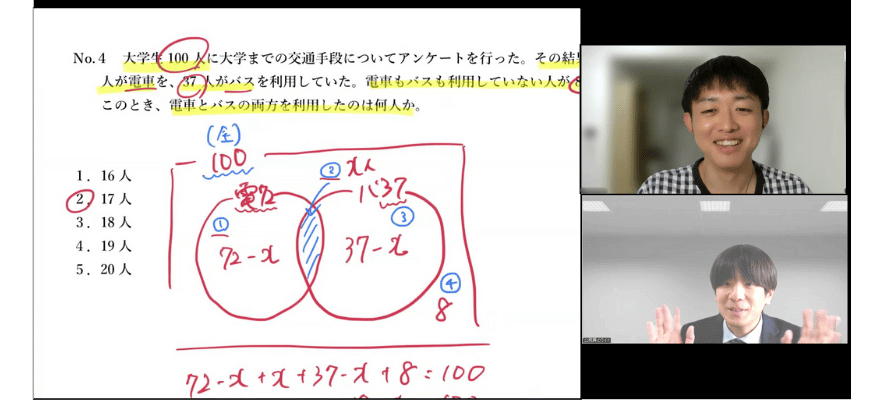 No. 4 大学生 100 人に大学までの交通手段についてアンケートを行った。その結
人が電車を、37 人がバスを利用していた。電車もバスも利用していない人が 8
このとき、電車とバスの両方を利用したのは何人か。
(全)
100
② x人
電72
バ37
1．16 人
2．17 人
3．18 人
4．19 人
5．20 人
①
③
72-x
37-x
④
8
72-x+x+37-x+8=100